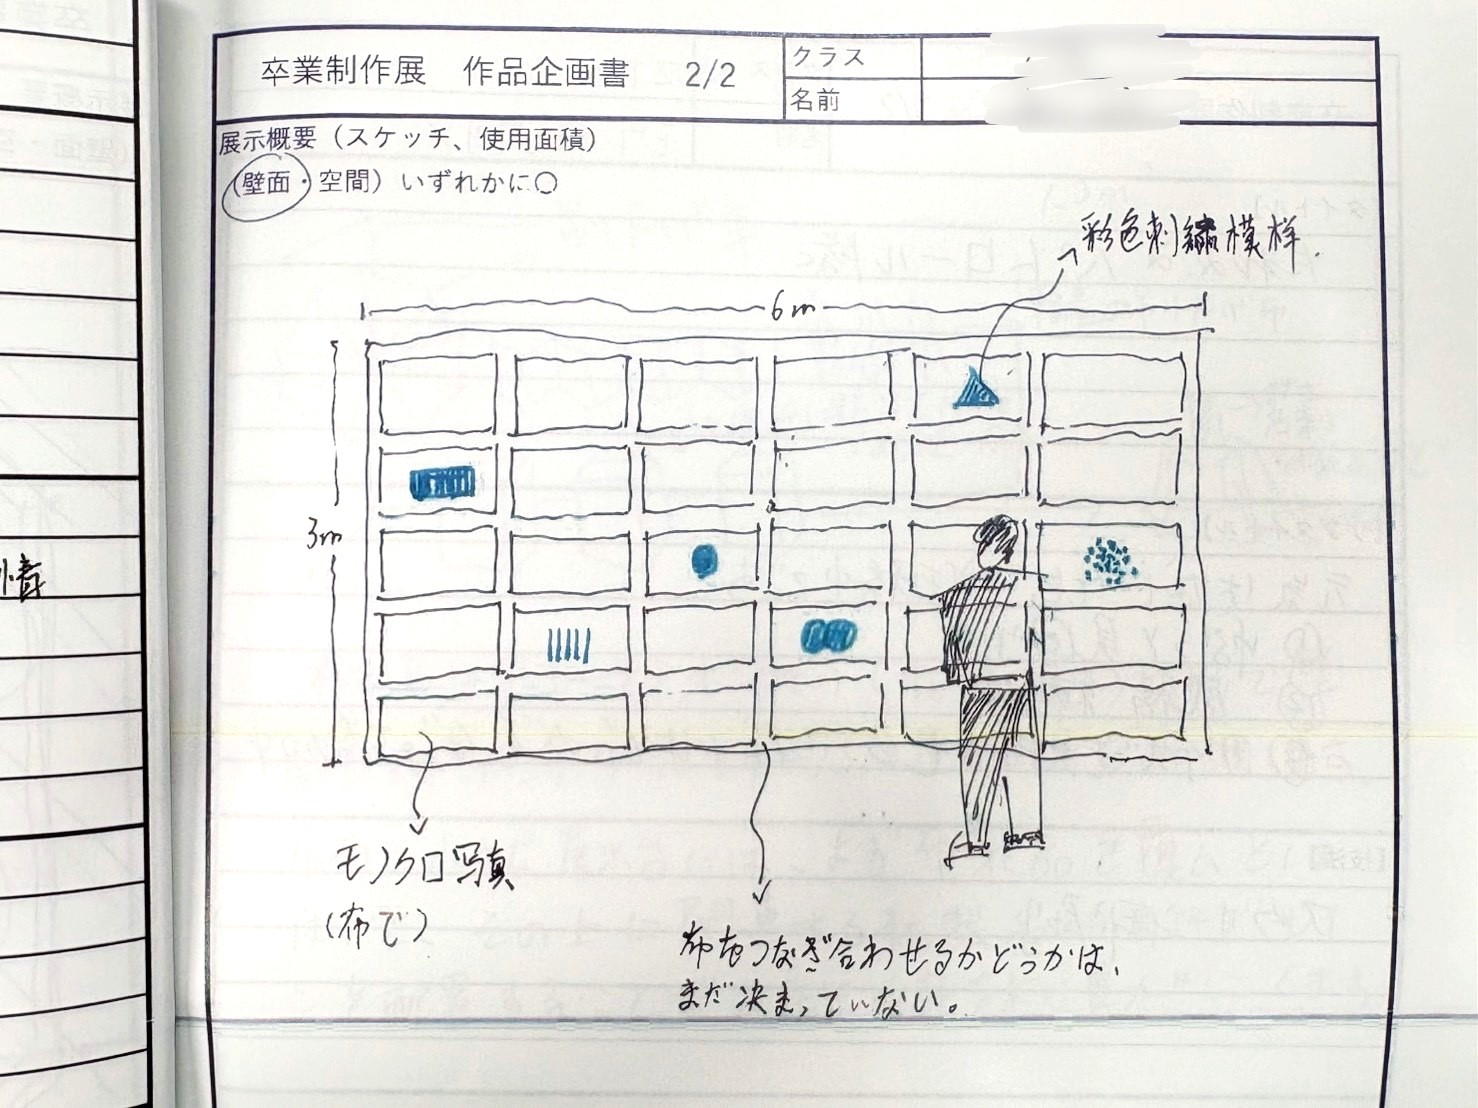 卒業制作展 作品企画書 2/2
クラス
名前
展示概要（スケッチ、使用面積）
（壁面・空間）いずれかに○
彩色刺繍模様.
6m
3m
情
モノクロ写真
(布で)
布をつなぎ合わせるかどうかは、
まだ決まっていない。